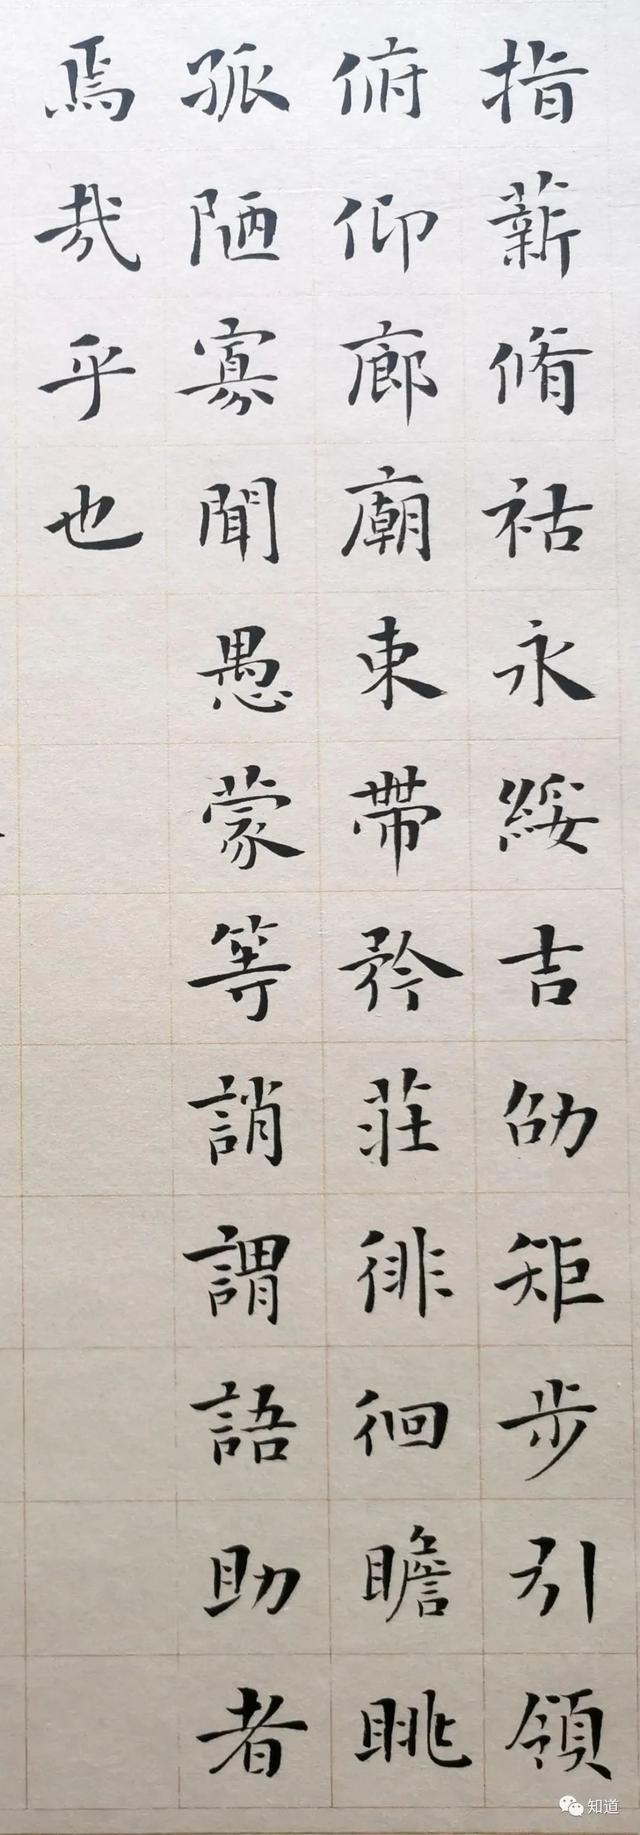 指薪脩祜永綏吉劭矩步引領
俯仰廊廟束帶矜莊徘徊瞻眺
孤陋寡聞愚蒙等誚謂語助者
焉哉乎也
知道